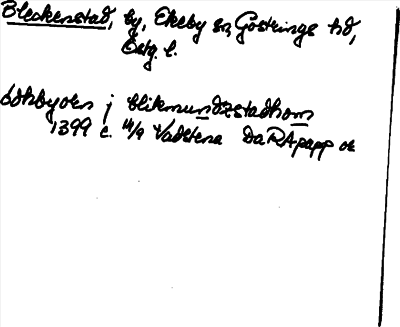 Bleckenstad, by, Ekeby sn, Göstrings hd,
Östg. l.
i blikmundzstadhom
1399 c. 14/9 Vadstena DaRA papp or